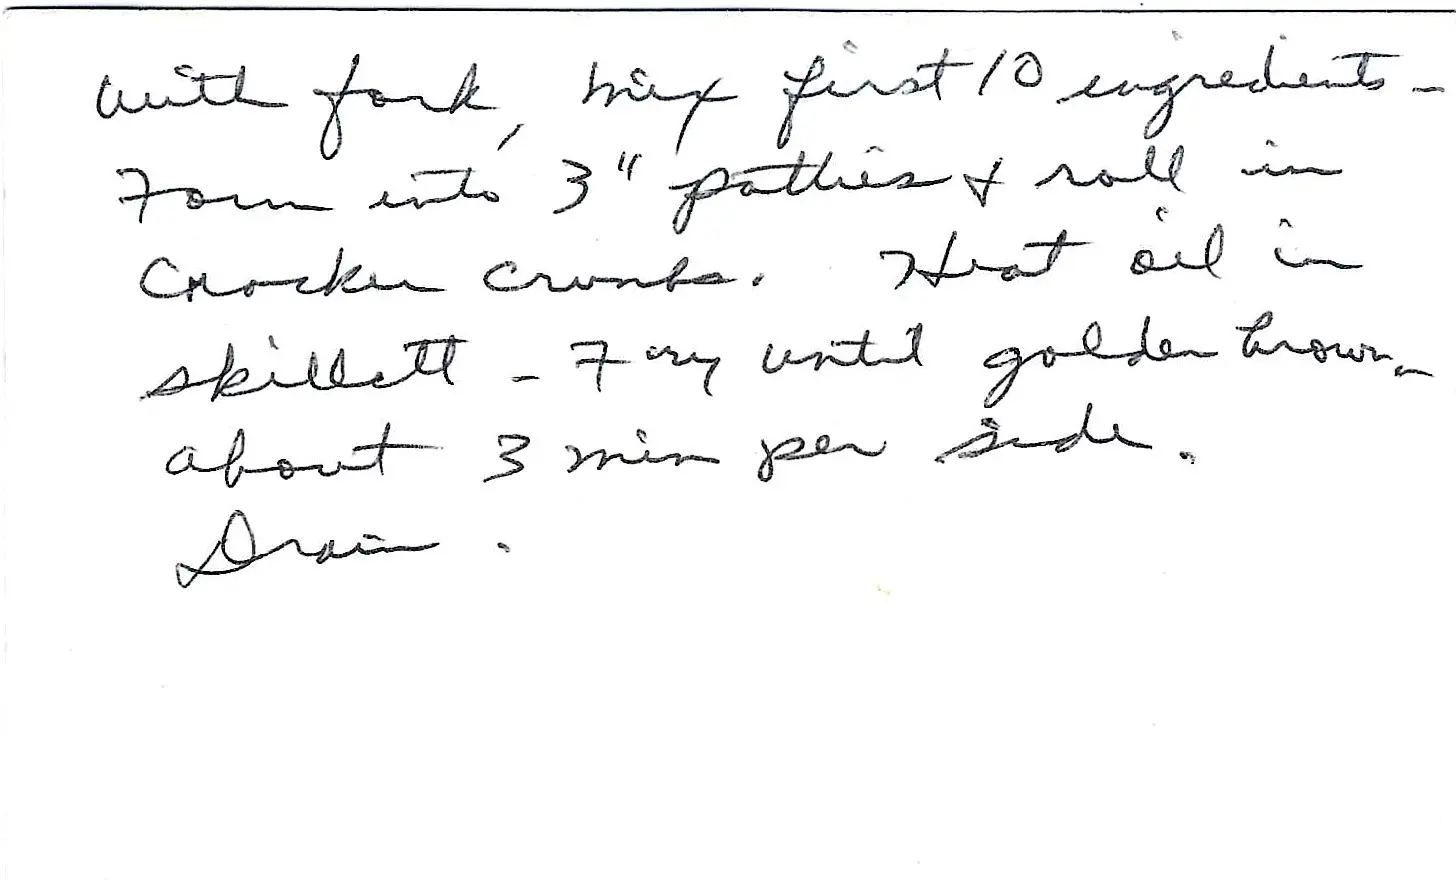 with fork, mix first 10 ingredients -
Form into 3" patties & roll in
Cracker crumbs. Heat oil in
skillett - Fry until golden brown -
about 3 min per side.
Drain.